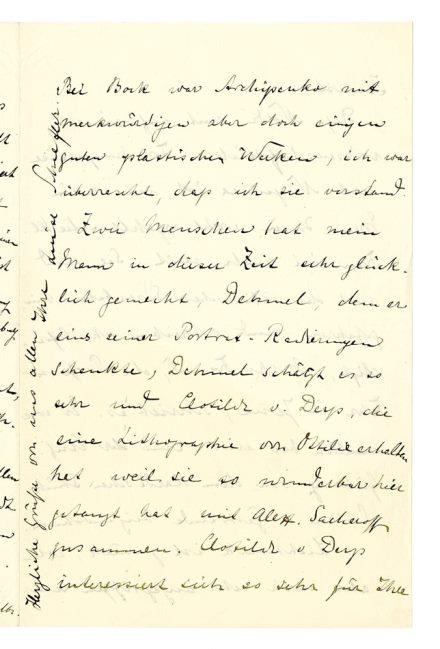 Bei Bock war Archipenko mit
merkwürdigen aber doch einigen
guten plastischen Werken, ich war
überrascht, daß ich sie verstand.
Zwei Menschen hat mein
Mann in dieser Zeit sehr glück-
lich gemacht, Dehmel, dem er
eins seiner Portrat-Radierungen
schenkte, Dehmel schätzt es so
sehr und Clotilde v. Derp, die
eine Lithographie von Ottilie erhalten
hat weil sie so wunderbar hier
getanzt hat mit Alex. Sacharoff
zusammen. Clotilde v. Derp
interessiert sich so sehr für Ihre
Herzliche Grüße von uns allen Ihre Luise Schiefler.